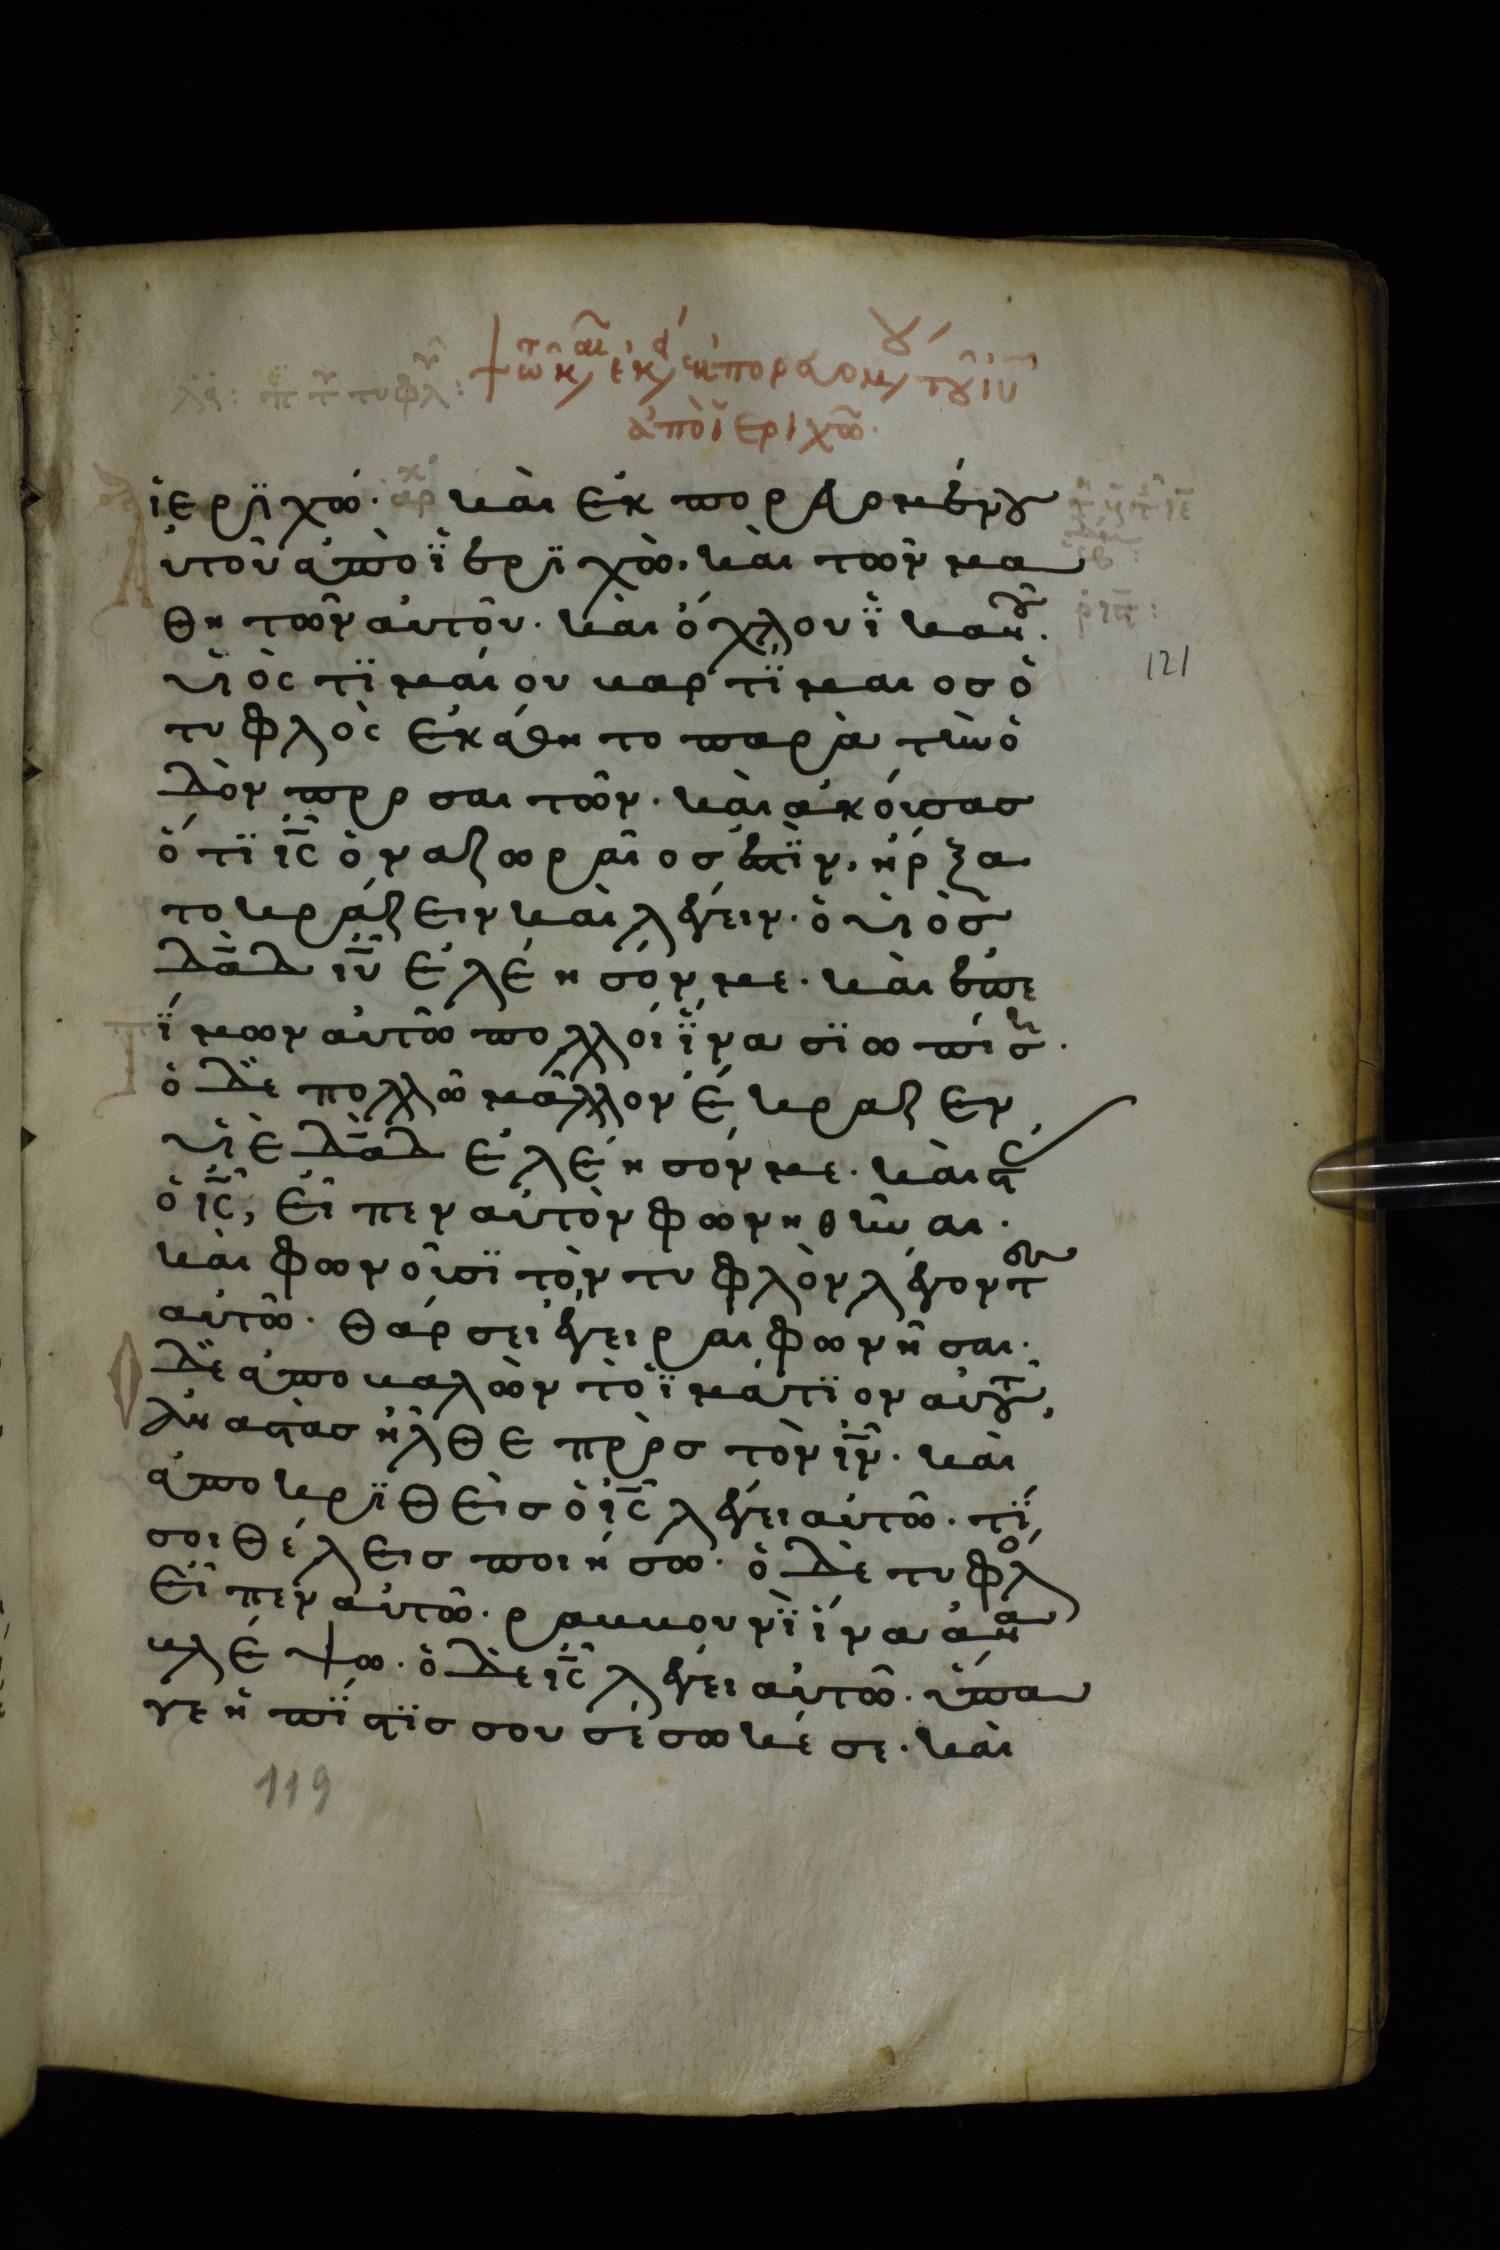 τῶ καιρ, ἐκ, ἐκπορευομ, τοῦ ἰυ
ἀπὸ ἱεριχῶ.
ἱεριχώ. αρχ καὶ ἐκπορευομένου
αυτοῦ ἀπὸ ϊεριχὼ. καὶ τῶν μα
θητῶν αὐτοῦ. καὶ ὄχλου ϊκανοῦ.
υἱὸς τιμαίου βαρτιμαιος ὁ
τυφλὸς ἐκάθητο παρὰ τὴν ὁ
δὸν προσαιτῶν. καὶ ἀκούσας
ὅτι ις ὁ ναζωραῖος ἐστιν, ἤρξα
το κράζειν καὶ λέγειν. ὁ υἱὸς
δαδ ιυ ἐλέησόν με. καὶ ἐπε
τίμων αὐτῶ πολλοί ϊνα σιωπήση.
ὁ δὲ πολλῶ μᾶλλον ἔκραζεν
υἱὲ δαδ ἐλέησόν με. καὶ στὰς
ὁ ις, εἶπεν αὐτὸν φωνηθῆναι.
καὶ φωνοῦσι τὸν τυφλὸν λέγοντες
αὐτῶ. θάρσει ἔγειραι φωνῆ σαι.
δὲ ἀποβαλὼν τὸ ϊμάτιον αὐτοῦ,
ἀναστὰς ἦλθε πρὸς τὸν ιν. καὶ
ἀποκριθεὶς ὁ ις λέγει αὐτῶ. τί
σοι θέλεις ποιήσω. ὁ δὲ τυφλὸς
εἶπεν αὐτῶ. ραββουνὶ ϊνα ἀνα
βλέψω. ὁ δὲ ις λέγει αὐτῶ. ὑπα
γε ἡ πίστις σου σέσωκέ σε. καὶ
121
119